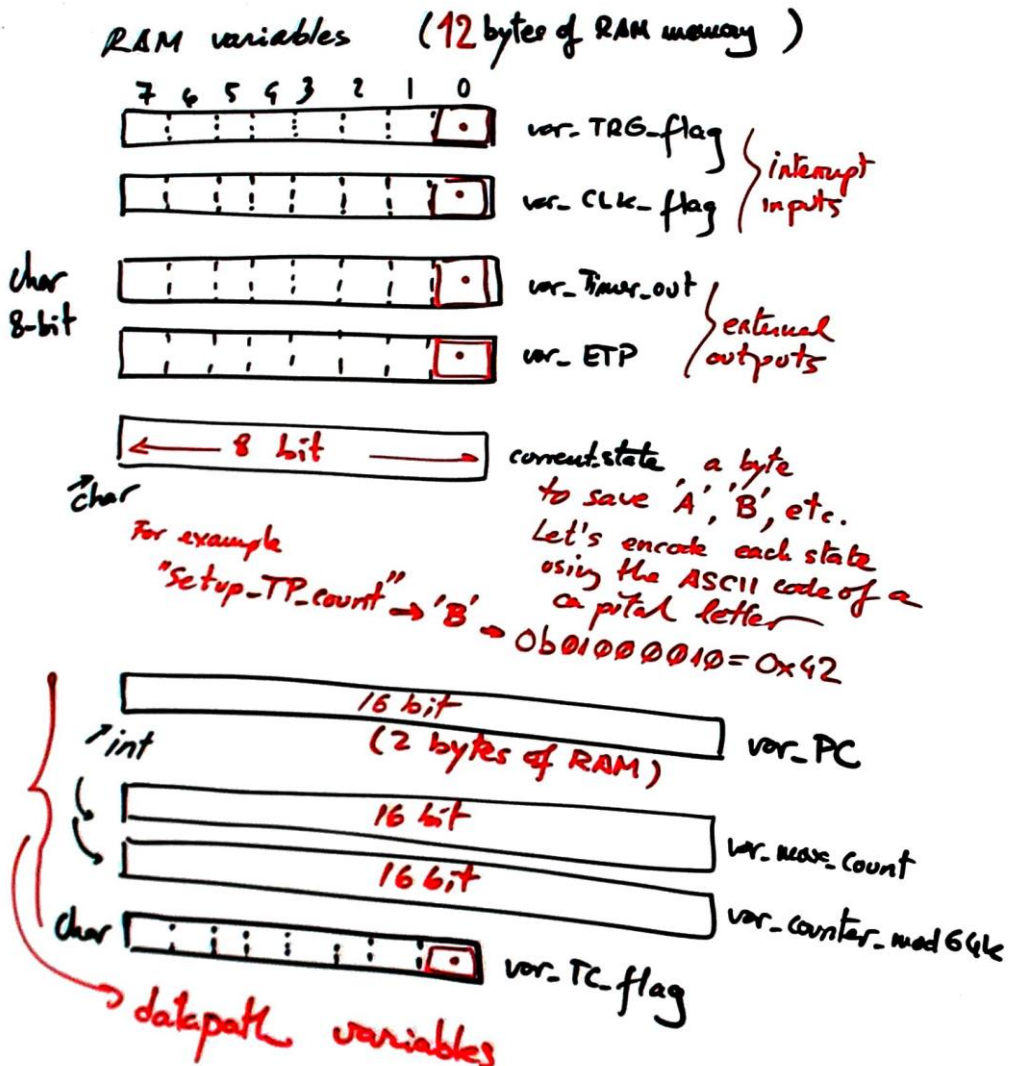 RAM variables (12 bytes of RAM memory)
7 6 5 4 3 2 1 0
var_TRG_flag
interrupt
inputs
var_CLK_flag
char
8-bit
var_Timer_out
external
outputs
var_ETP
8 bit
current_state a byte
char
to save 'A', 'B', etc.
For example
Let's encode each state
using the ASCII code of a
capital letter
"Setup_TP_count" → 'B' → 0b01000010 = 0x42
16 bit
(2 bytes of RAM)
var_PC
int
16 bit
var_max_count
16 bit
var_counter_mod64k
char
var_TC_flag
datapath variables